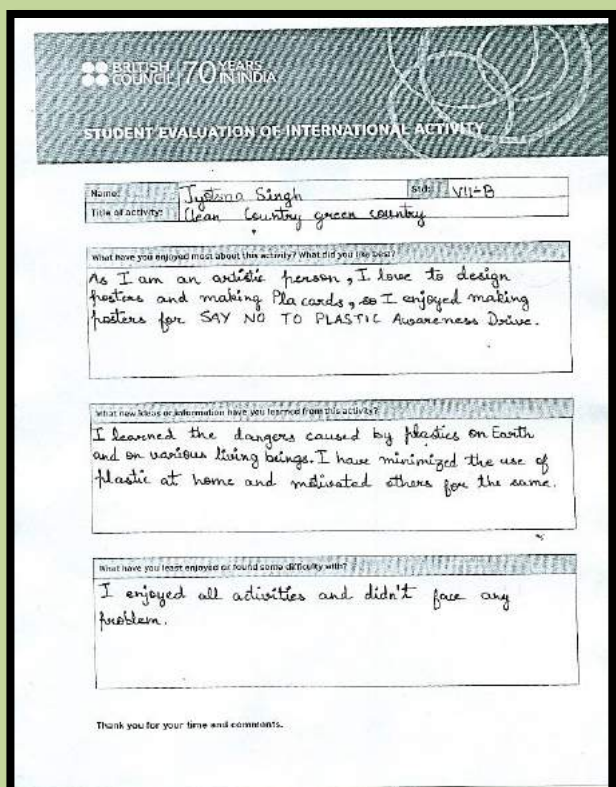 BRITISH COUNCIL 70 YEARS IN INDIA
STUDENT EVALUATION OF INTERNATIONAL ACTIVITY
Name: Jyotsna Singh Std: VII-B
Title of activity: Clean Country green country
What have you enjoyed most about this activity? What did you like best?
As I am an artistic person, I love to design
posters and making Pla cards, so I enjoyed making
posters for SAY NO TO PLASTIC Awareness Drive.
What new ideas or information have you learned from this activity?
I learned the dangers caused by plastics on Earth
and on various living beings. I have minimized the use of
plastic at home and motivated others for the same.
What have you least enjoyed or found some difficulty with?
I enjoyed all activities and didn't face any
problem.
Thank you for your time and comments.